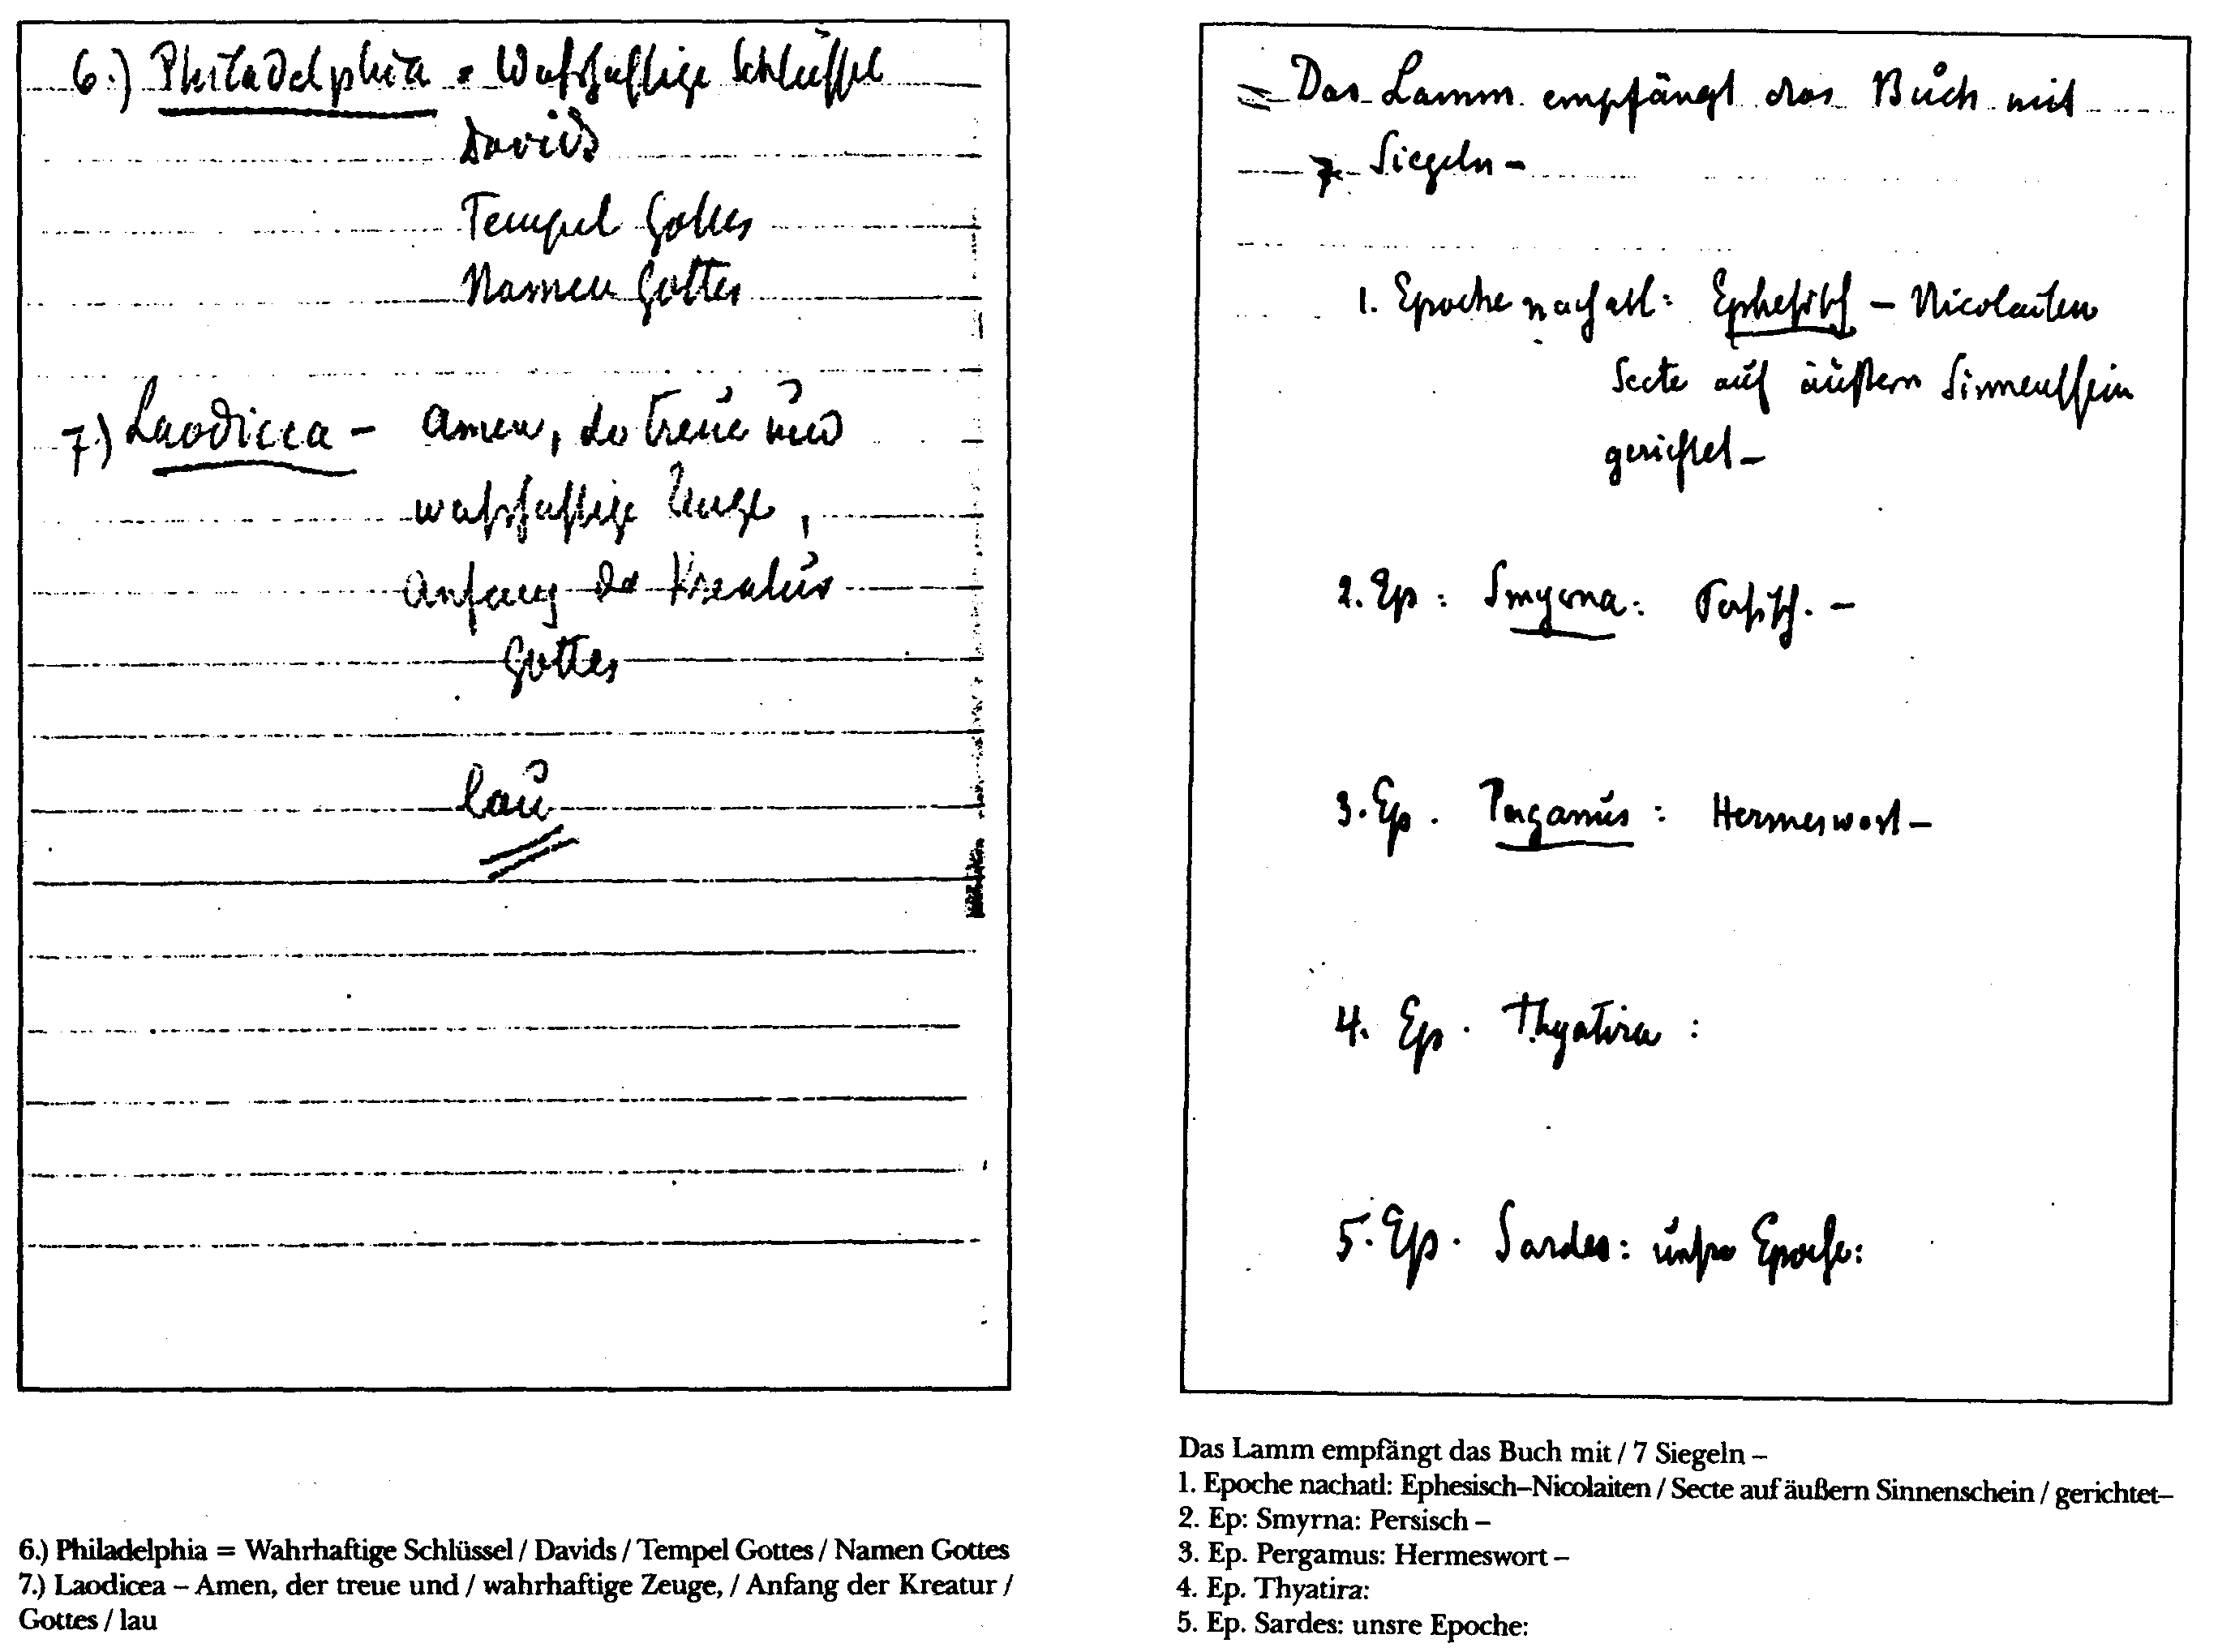 6.) Philadelphia = Wahrhaftige Schlüssel
Davids
Tempel Gottes
Namen Gottes
7.) Laodicea – Amen, der treue und
wahrhaftige Zeuge,
Anfang der Kreatur
Gottes
lau
6.) Philadelphia = Wahrhaftige Schlüssel / Davids / Tempel Gottes / Namen Gottes
7.) Laodicea – Amen, der treue und / wahrhaftige Zeuge, / Anfang der Kreatur /
Gottes / lau
= Das Lamm empfängt das Buch mit
7 Siegeln –
1. Epoche nachatl: Ephesisch – Nicolaiten
Secte auf äußern Sinnenschein
gerichtet –
2. Ep: Smyrna: Persisch. –
3. Ep. Pergamus: Hermeswort –
4. Ep. Thyatira:
5. Ep. Sardes: unsre Epoche:
Das Lamm empfängt das Buch mit / 7 Siegeln –
1. Epoche nachatl: Ephesisch–Nicolaiten / Secte auf äußern Sinnenschein / gerichtet–
2. Ep: Smyrna: Persisch –
3. Ep. Pergamus: Hermeswort –
4. Ep. Thyatira:
5. Ep. Sardes: unsre Epoche: